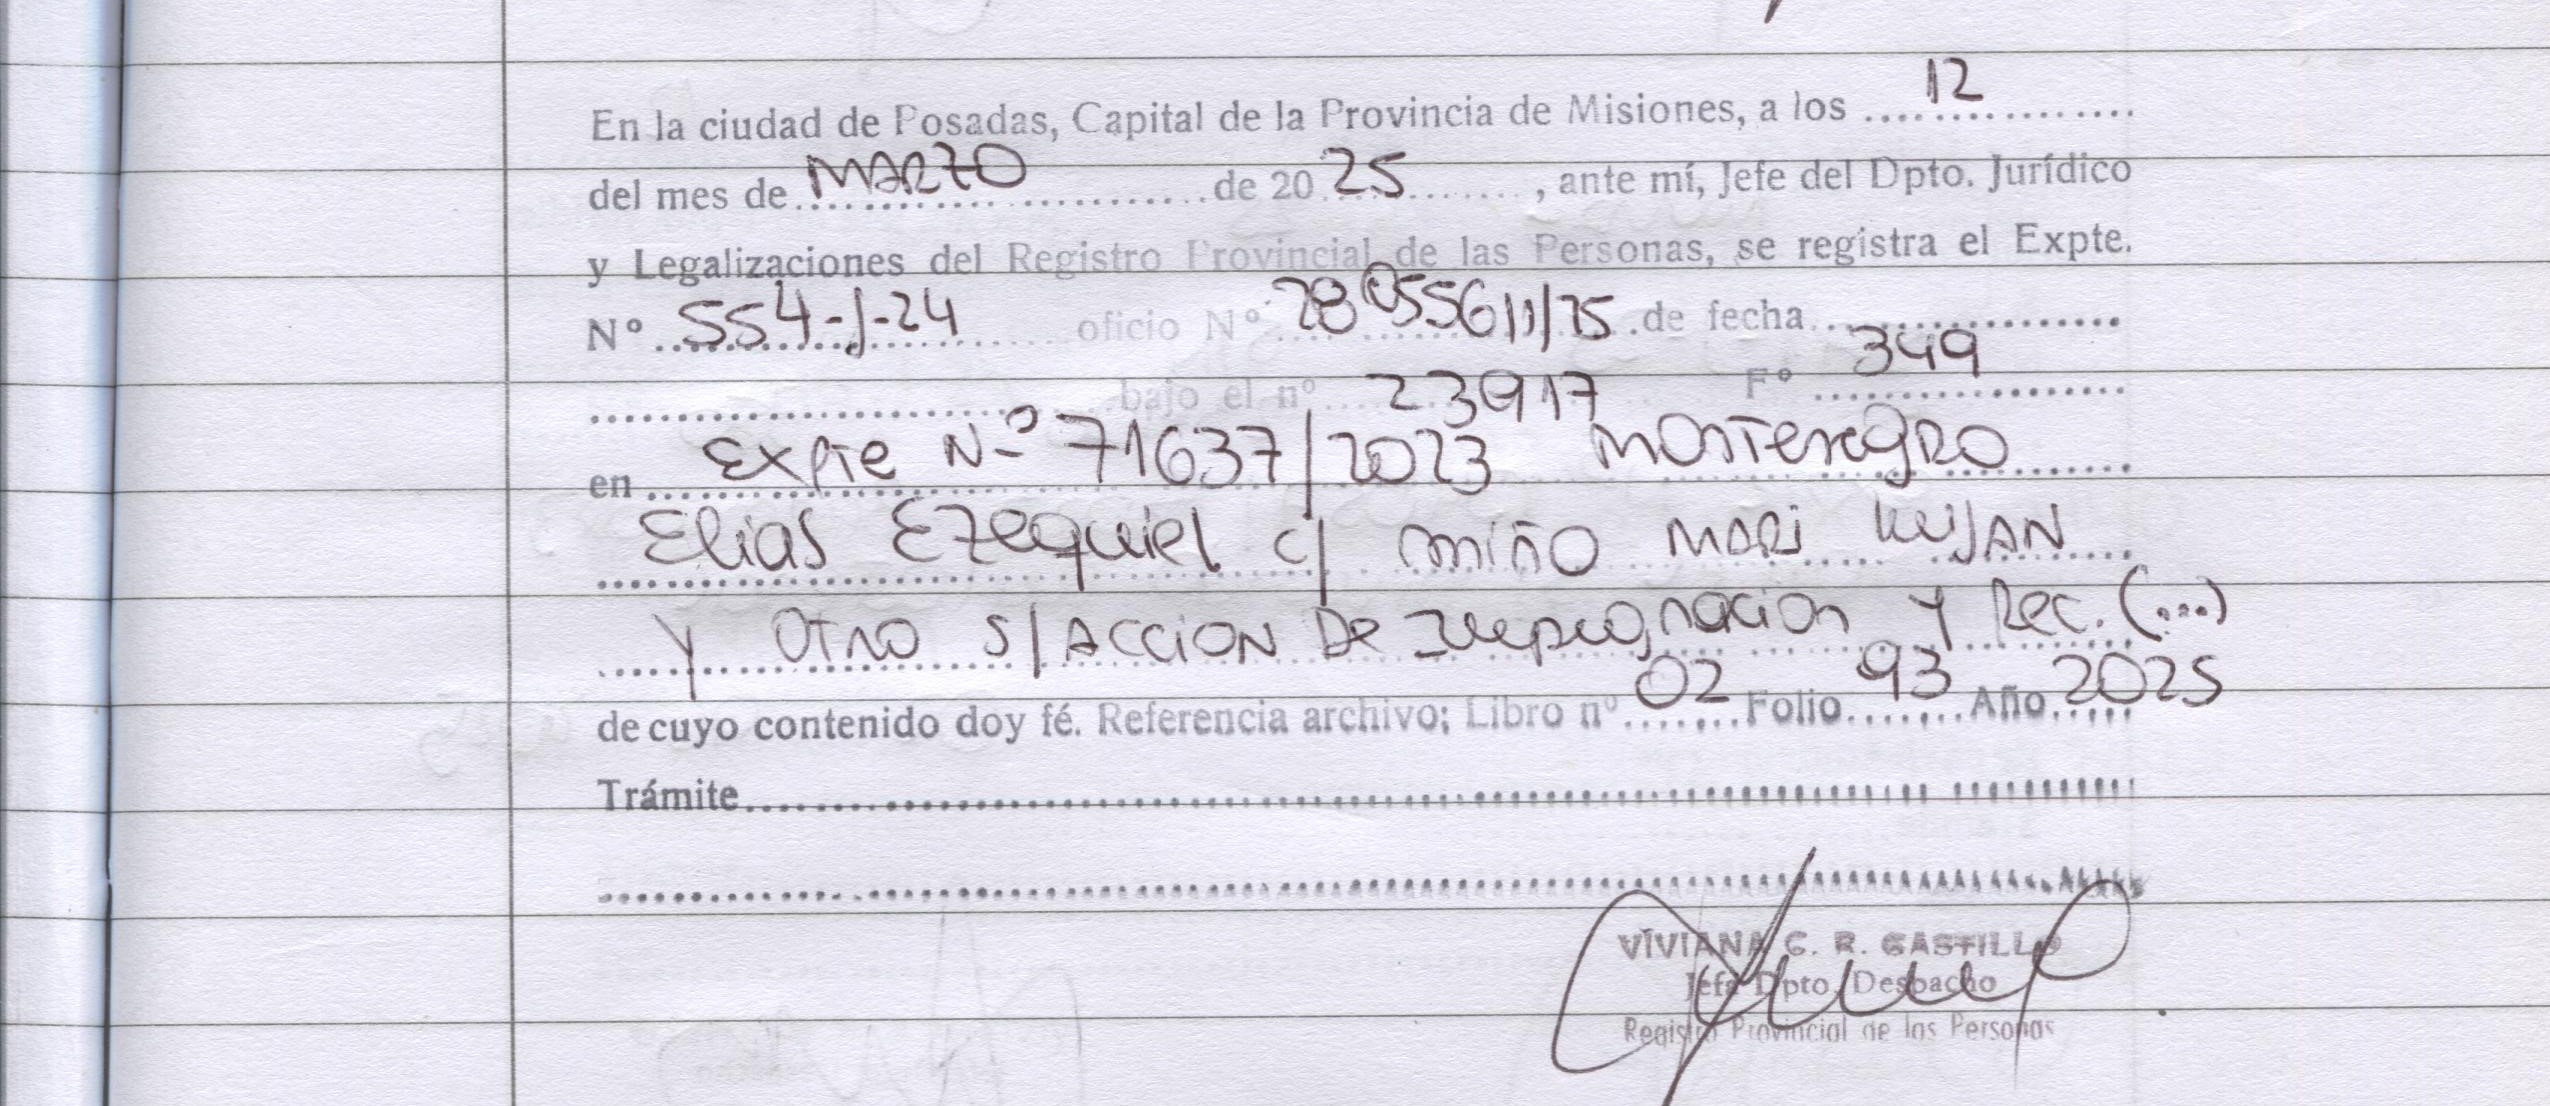 En la ciudad de Posadas, Capital de la Provincia de Misiones, a los ....12....
del mes de MARZO de 2025, ante mí, Jefe del Dpto. Jurídico
y Legalizaciones del Registro Provincial de las Personas, se registra el Expte.
N° 554-J-24 oficio N° /25 de fecha
bajo el n° 23917 F° 349
en Expte Nº 71637/2023 MONTENEGRO
Elias Ezequiel c/ MIÑO MARI LUJAN
Y OTRO S/ACCION De Impugnacion y Rec. (...)
de cuyo contenido doy fé. Referencia archivo; Libro nº 02 Folio 93 Año 2025
Trámite
VIVIANA C. R. CASTILLO
Jefa Dpto. Despacho
Registro Provincial de las Personas